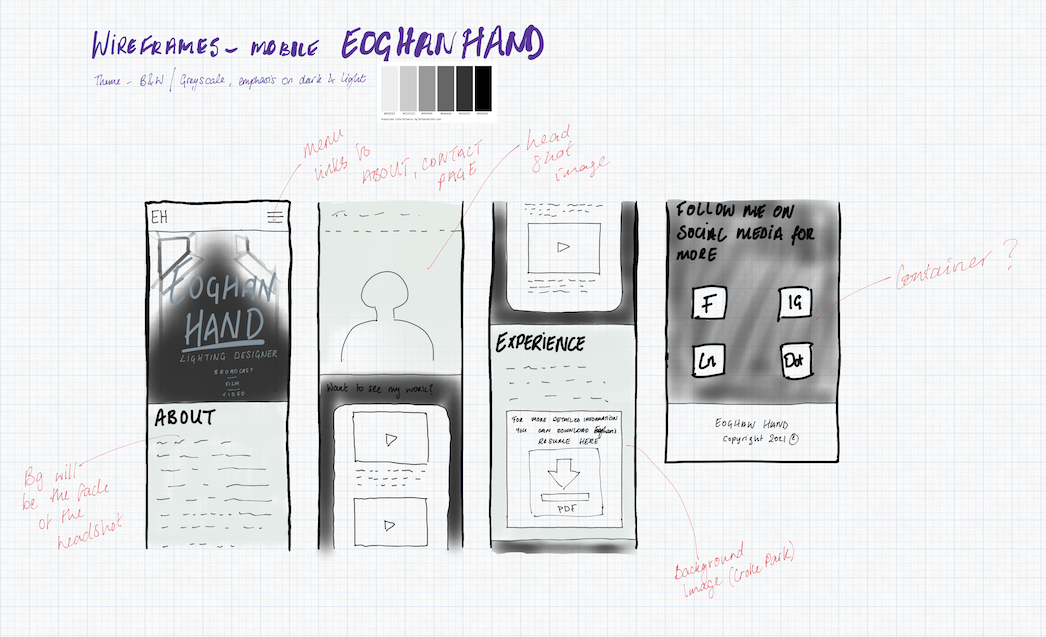 WIREFRAMES - MOBILE EOGHAN HAND
Theme - B&W / Greyscale, emphasis on dark & light
menu
links to
ABOUT, CONTACT
PAGE
head
shot
image
EH
EOGHAN
HAND
LIGHTING DESIGNER
BROADCAST
FILM
VIDEO
ABOUT
Bg will
be the fade
of the
headshot
Want to see my work?
EXPERIENCE
FOR MORE DETAILED INFORMATION
YOU CAN DOWNLOAD Eoghan's
RESUME HERE
PDF
Background
image (Croke Park)
FOLLOW ME ON
SOCIAL MEDIA FOR
MORE
F
IG
Ln
Dot
Container?
EOGHAN HAND
Copyright 2021 ©